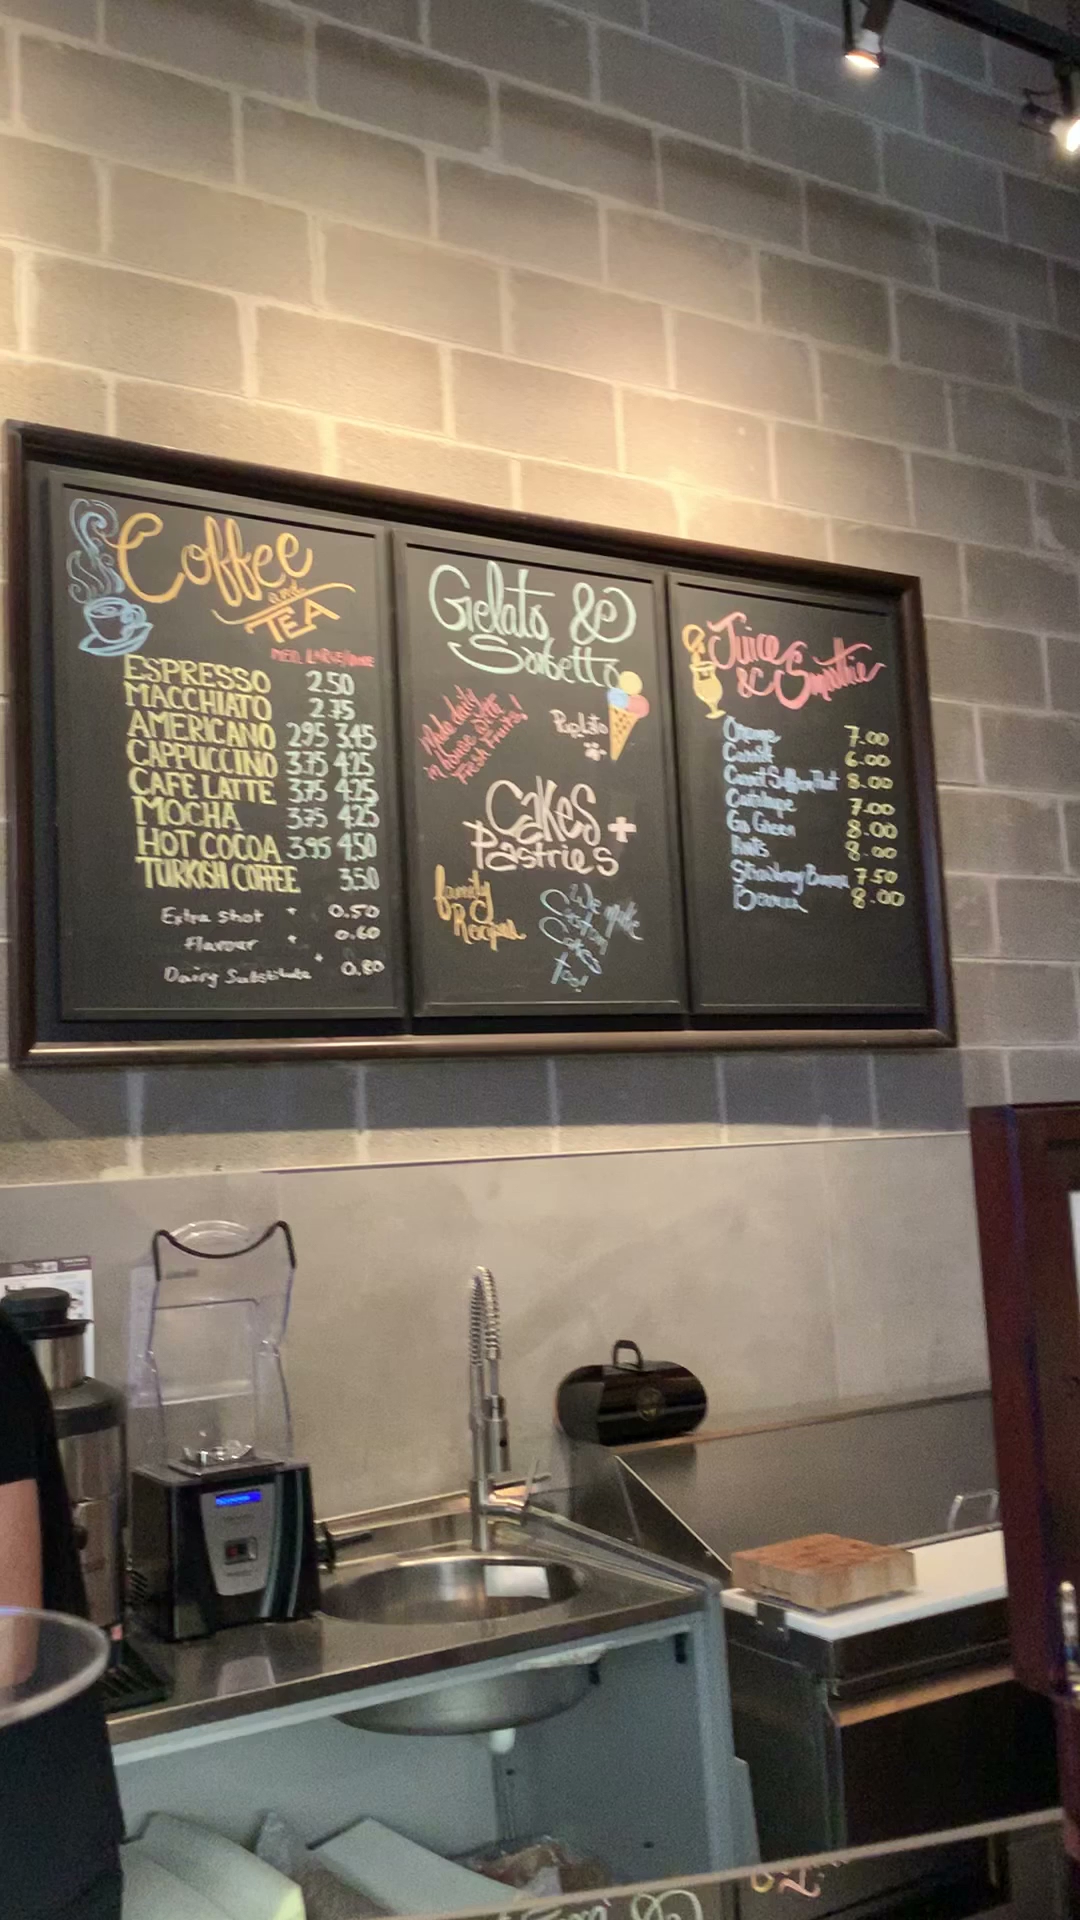 Coffee
and
TEA
MED. LARGE/ONE
ESPRESSO 2.50
MACCHIATO 2.75
AMERICANO 2.95 3.45
CAPPUCCINO 3.75 4.25
CAFE LATTE 3.75 4.25
MOCHA 3.75 4.25
HOT COCOA 3.95 4.50
TURKISH COFFEE 3.50
Extra shot 0.50
flavour 0.60
Dairy Substitute 0.80
Gelato &
Sorbetto
Made daily
in house with
Fresh Fruits!
PupLato
Cakes +
Pastries
family
Recipes
We make
Custom
Cakes
too!
Juice
& Smoothie
Orange 7.00
Carrot 6.00
8.00
Cantaloupe 7.00
Go Green 8.00
8.00
Strawberry Banana 7.50
8.00